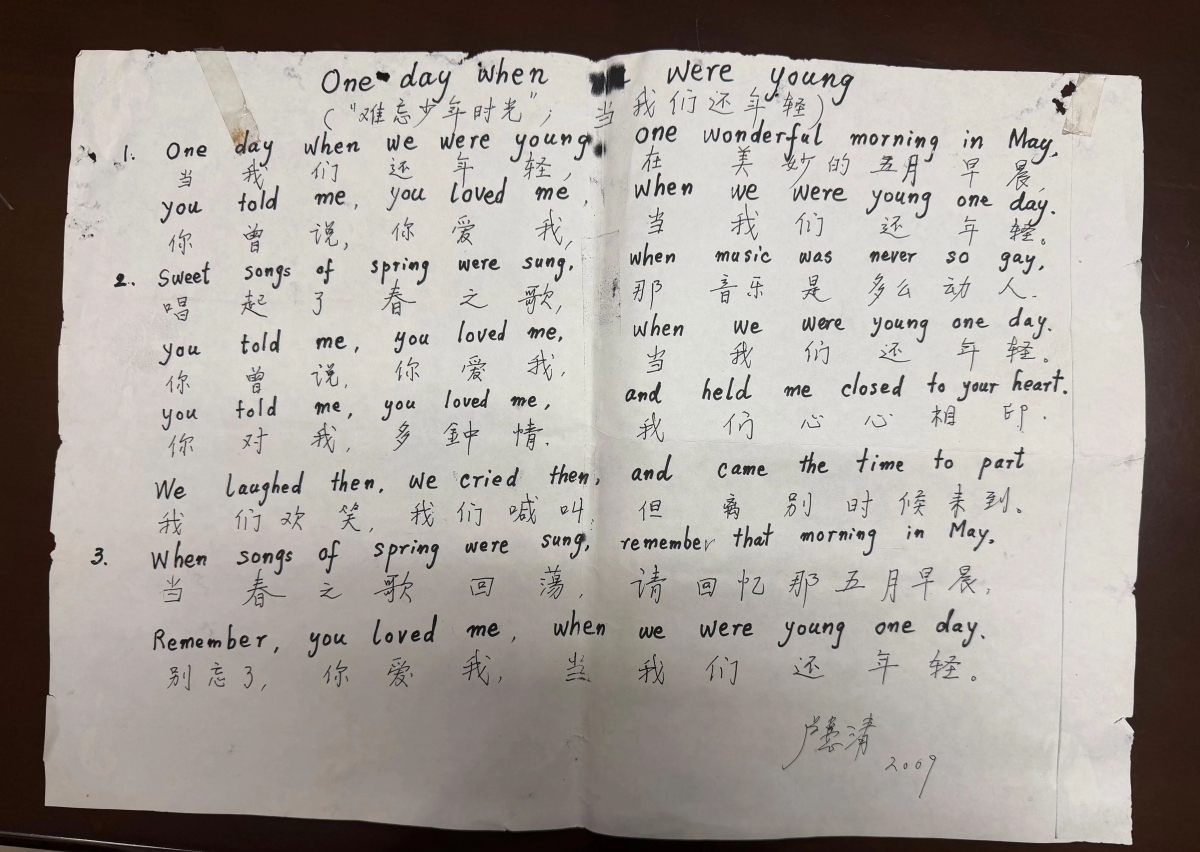 One day when were young
("难忘少年时光"; 当我们还年轻)
1. One day when we were young, one wonderful morning in May,
当我们还年轻, 在美妙的五月早晨,
you told me, you loved me, when we were young one day.
你曾说, 你爱我, 当我们还年轻。
2. Sweet songs of spring were sung, when music was never so gay,
唱起了春之歌, 那音乐是多么动人.
you told me, you loved me, when we were young one day.
你曾说, 你爱我, 当我们还年轻。
you told me, you loved me, and held me closed to your heart.
你对我, 多鈡情. 我们心心相印.
We laughed then, we cried then, and came the time to part
我们欢笑, 我们喊叫, 但离别时候来到。
3. When songs of spring were sung, remember that morning in May.
当春之歌回荡, 请回忆那五月早晨,
Remember, you loved me, when we were young one day.
别忘了, 你爱我, 当我们还年轻。
2009